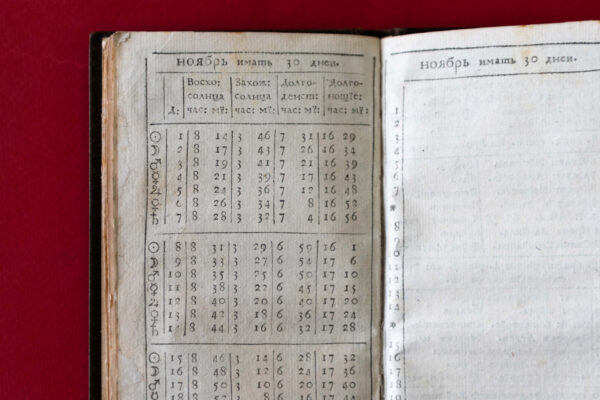 ноябрь имать 30 дней.
Восхо: Захож: Долго- Долго-
солнца солнца денст: нощїе:
Д: час: мї: час: мї: час: мї: час: мї:
☉ 1 8 14 3 46 7 31 16 29
2 8 17 3 43 7 26 16 34
3 8 19 3 41 7 21 16 39
4 8 21 3 39 7 17 16 43
5 8 24 3 36 7 12 16 48
6 8 26 3 34 7 8 16 52
7 8 28 3 32 7 4 16 56
☉ 8 8 31 3 29 6 59 16 1
9 8 33 3 27 6 54 17 6
10 8 35 3 25 6 50 17 10
11 8 38 3 22 6 45 17 15
12 8 40 3 20 6 40 17 20
13 8 42 3 18 6 36 17 24
14 8 44 3 16 6 32 17 28
☉ 15 8 46 3 14 6 28 17 32
16 8 48 3 12 6 24 17 36
17 8 50 3 10 6 20 17 40
18 8 52 3 8 6 16 17 44
ноябрь имать 30 дней.
1
2
3
4
5
6
7
*
8
9
10
11
12
13
14
*
15
16
17
18